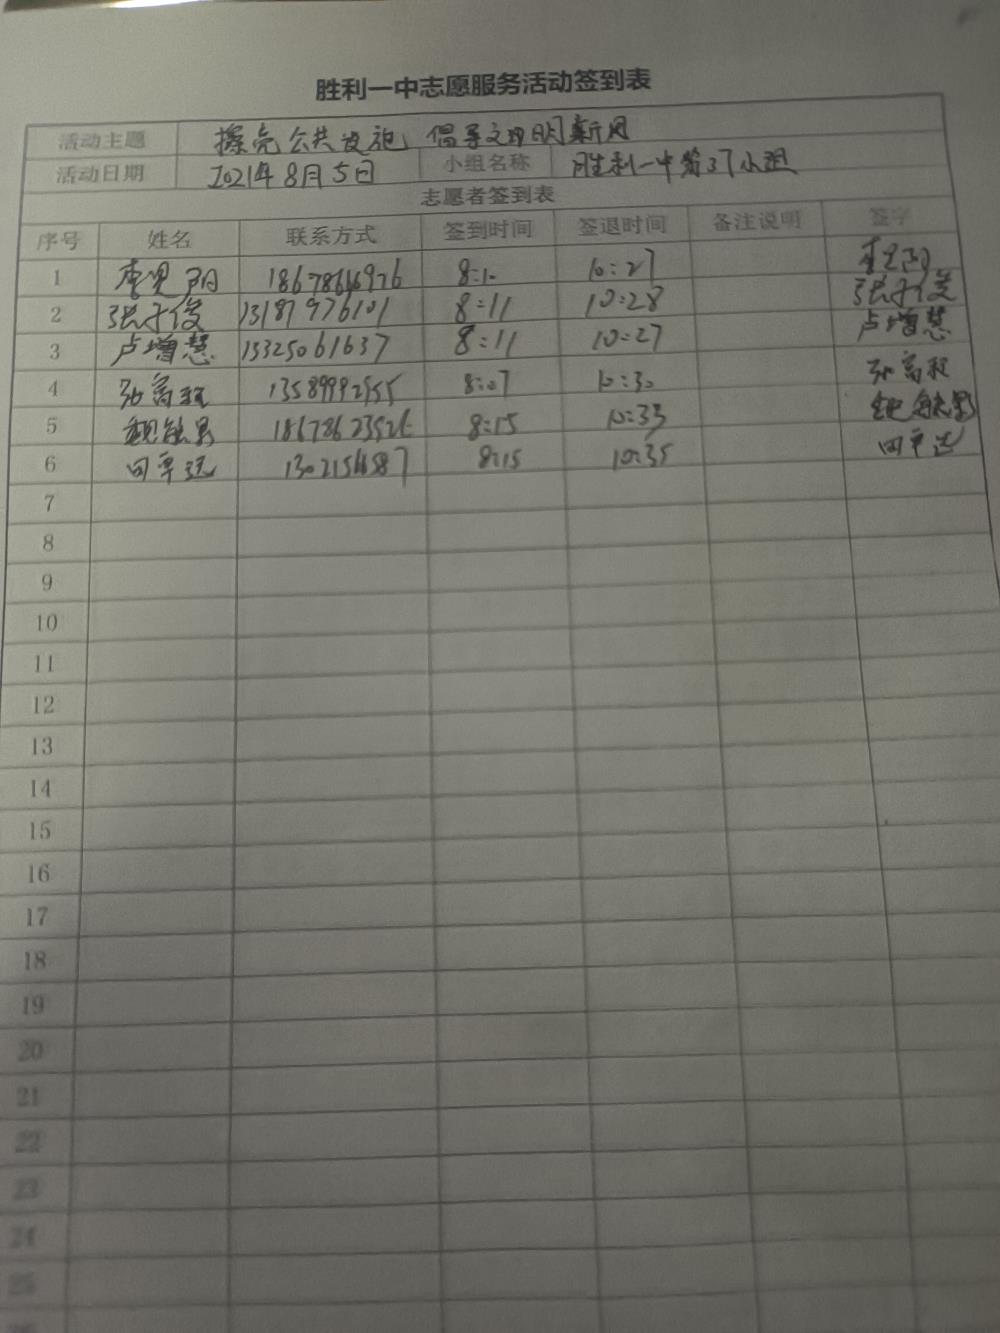 胜利一中志愿服务活动签到表
活动主题 擦亮公共设施 倡导文明新风
活动日期 2021年8月5日 小组名称 胜利一中第37小组
志愿者签到表
序号 姓名 联系方式 签到时间 签退时间 备注说明 签字
1 18678616976 8:10 10:27
2 张子俊 13187976101 8:11 10:28 张子俊
3 卢增慧 15325061637 8:11 10:27 卢增慧
4 13589992955 8:07 10:30
5 8:15 10:33
6 13021546587 8:15 10:35
7
8
9
10
11
12
13
14
15
16
17
18
19
20
21
22
23
24
25